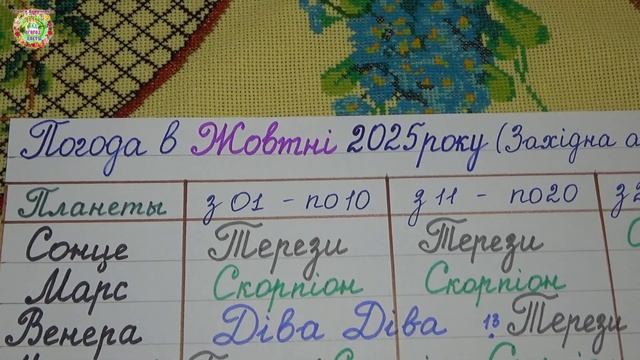 Погода в Жовтні 2025 року (Західна а
Планеты з 01 - по 10 з 11 - по 20 з 2
Сонце Терези Терези
Марс Скорпіон Скорпіон
Венера Діва Діва 13 Терези